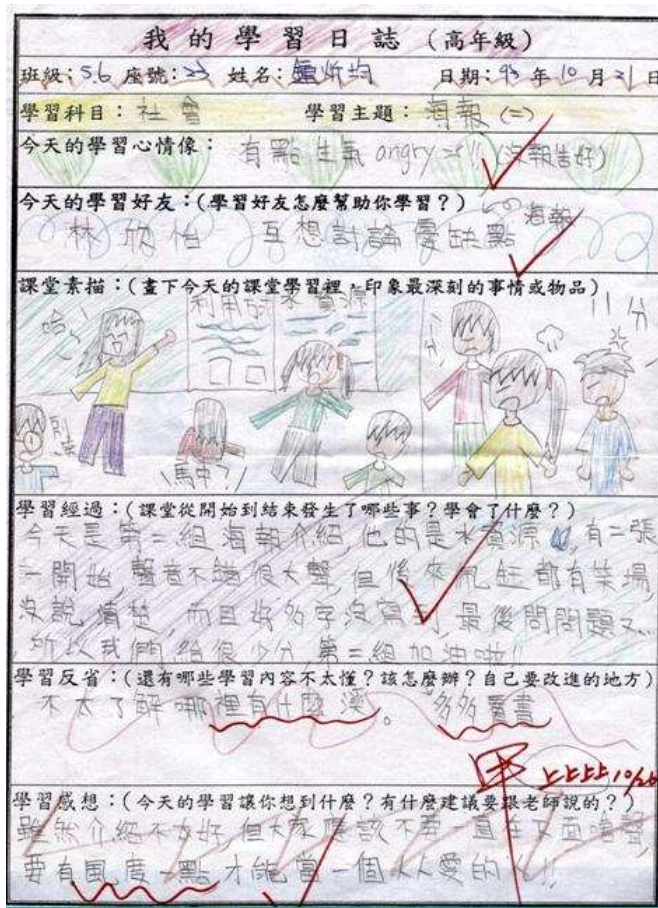 我的學習日誌（高年級）
班級：5.6 座號：23 姓名： 日期：93年10月21日
學習科目：社會 學習主題：海報(二)
今天的學習心情像：有點生氣angry !! (沒報告好)
今天的學習好友：(學習好友怎麼幫助你學習？)
海報
林欣怡 互想討論優缺點
課堂素描：(畫下今天的課堂學習裡，印象最深刻的事情或物品)
哈
利用 水資源
11分
分
馬中？
學習經過：(課堂從開始到結束發生了哪些事？學會了什麼？)
今天是第二組海報介紹,他的是水資源 ,有二張
一開始聲音不錯很大聲,但後來 都有笑場,
沒說清楚,而且好多字沒寫到,最後問問題又...
所以我們給很少分,第二組加油啦!!
學習反省：(還有哪些學習內容不太懂？該怎麼辦？自己要改進的地方)
不太了解哪裡有什麼溪。多多看書
甲 上上上上 10/26
學習感想：(今天的學習讓你想到什麼？有什麼建議要跟老師說的？)
雖然介紹不太好,但大家應該不要一直在下面噓聲,
要有風度一點,才能當一個人人愛的人!!